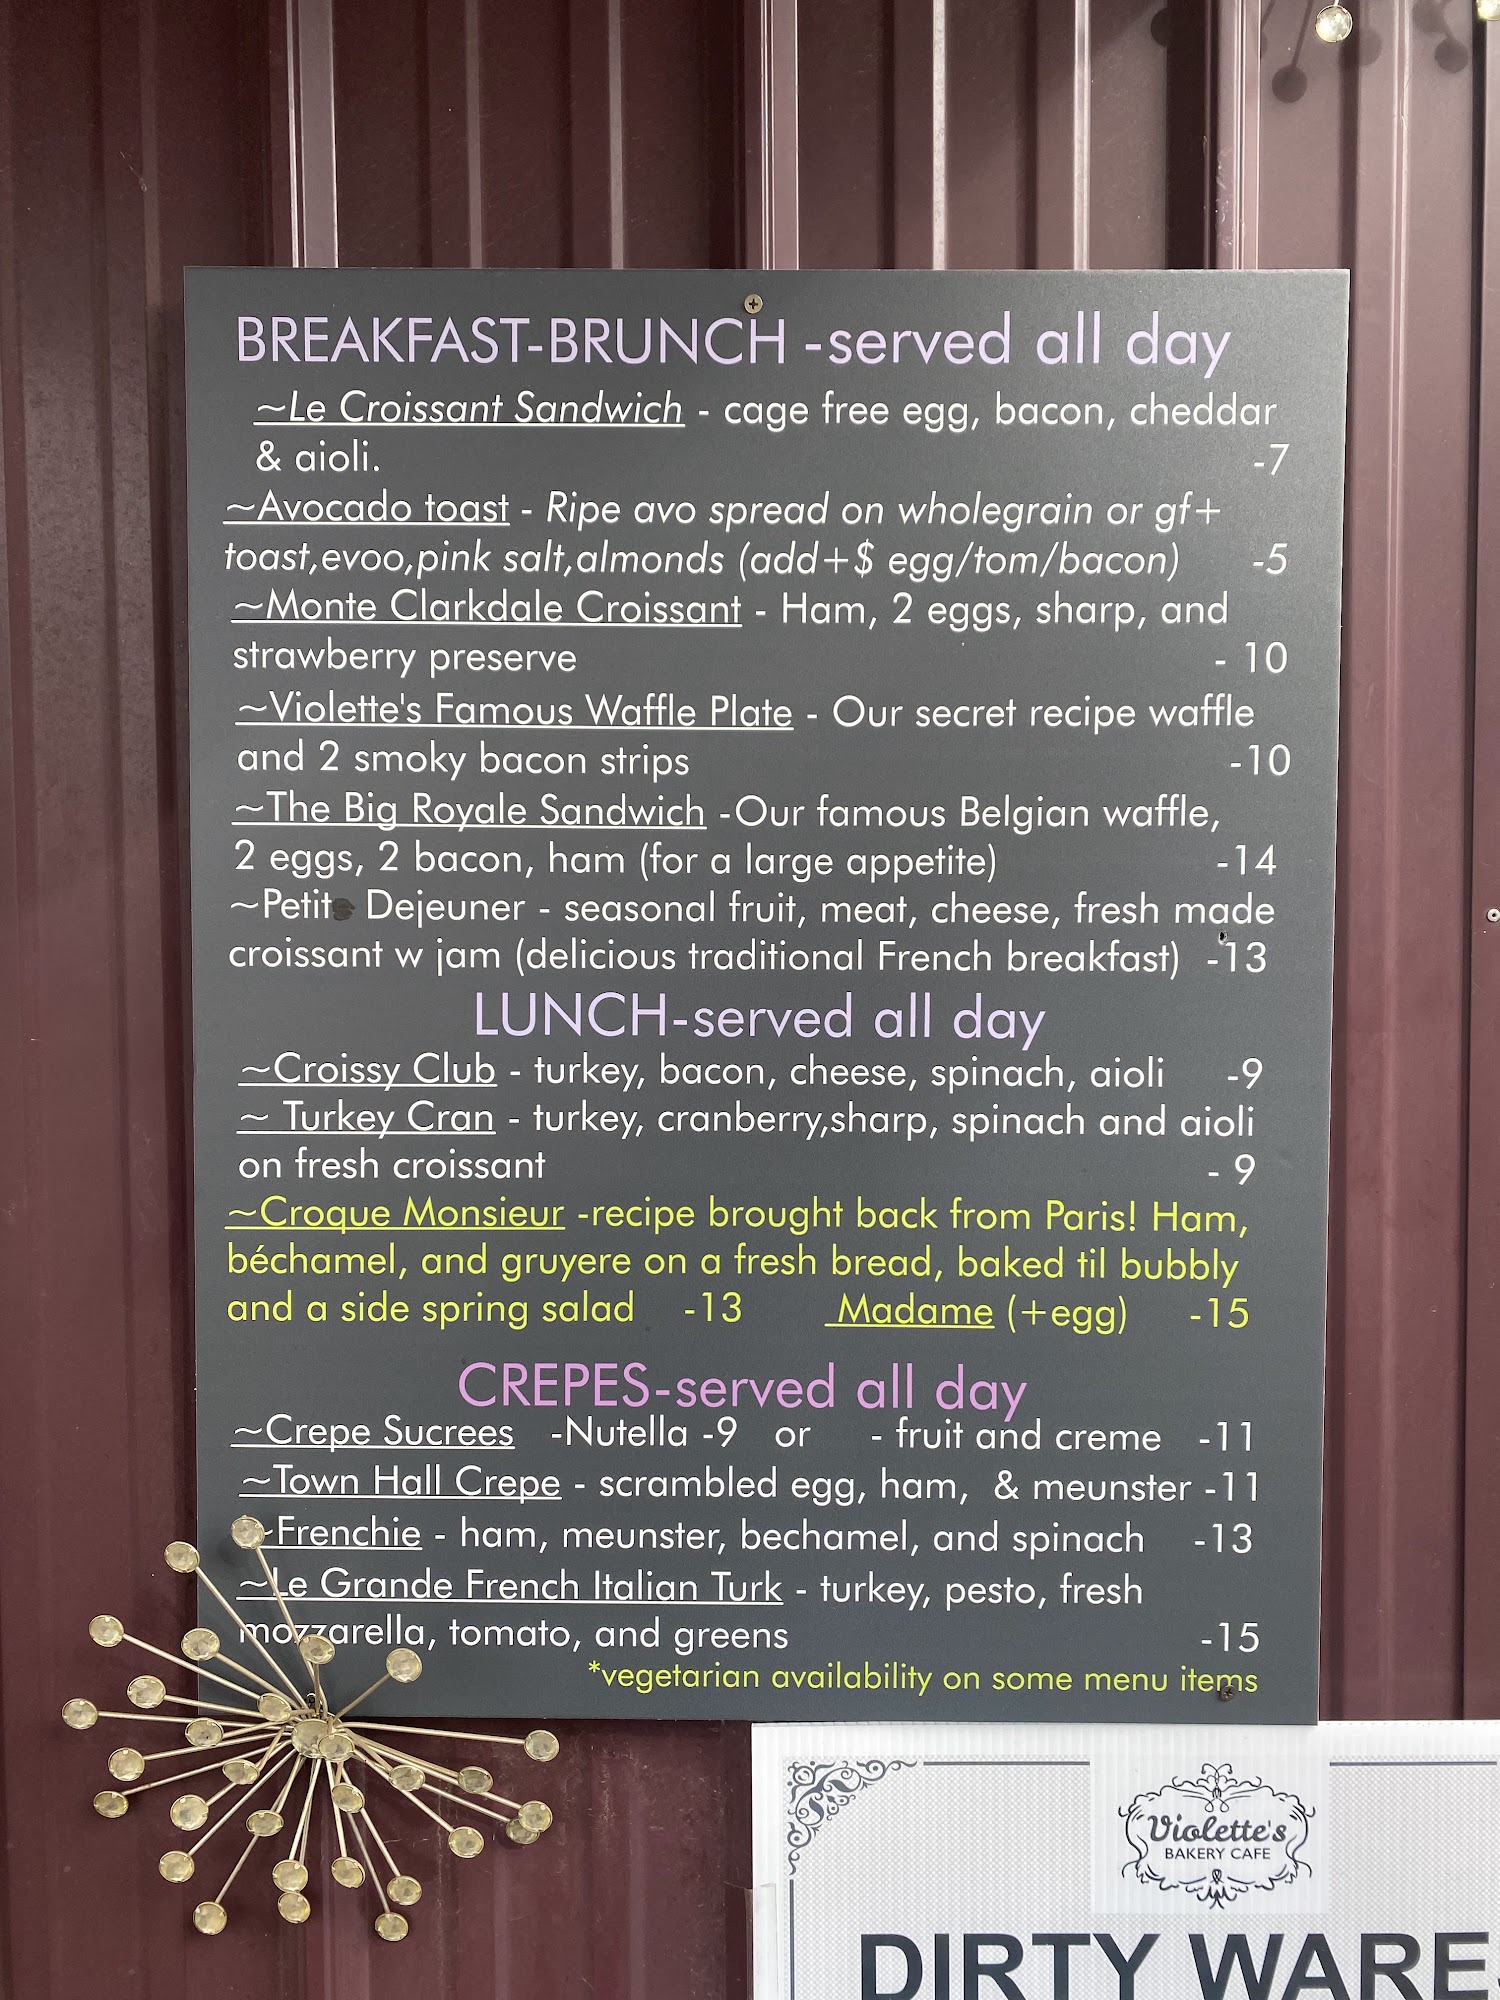 BREAKFAST-BRUNCH -served all day
~Le Croissant Sandwich - cage free egg, bacon, cheddar
& aioli. -7
~Avocado toast - Ripe avo spread on wholegrain or gf+
toast,evoo,pink salt,almonds (add+$ egg/tom/bacon) -5
~Monte Clarkdale Croissant - Ham, 2 eggs, sharp, and
strawberry preserve - 10
~Violette's Famous Waffle Plate - Our secret recipe waffle
and 2 smoky bacon strips -10
~The Big Royale Sandwich -Our famous Belgian waffle,
2 eggs, 2 bacon, ham (for a large appetite) -14
~Petit Dejeuner - seasonal fruit, meat, cheese, fresh made
croissant w jam (delicious traditional French breakfast) -13
LUNCH-served all day
~Croissy Club - turkey, bacon, cheese, spinach, aioli -9
~ Turkey Cran - turkey, cranberry,sharp, spinach and aioli
on fresh croissant - 9
~Croque Monsieur -recipe brought back from Paris! Ham,
béchamel, and gruyere on a fresh bread, baked til bubbly
and a side spring salad -13 Madame (+egg) -15
CREPES-served all day
~Crepe Sucrees -Nutella -9 or - fruit and creme -11
~Town Hall Crepe - scrambled egg, ham, & meunster -11
~Frenchie - ham, meunster, bechamel, and spinach -13
~Le Grande French Italian Turk - turkey, pesto, fresh
mozzarella, tomato, and greens -15
*vegetarian availability on some menu items
Violette's
BAKERY CAFE
DIRTY WARE